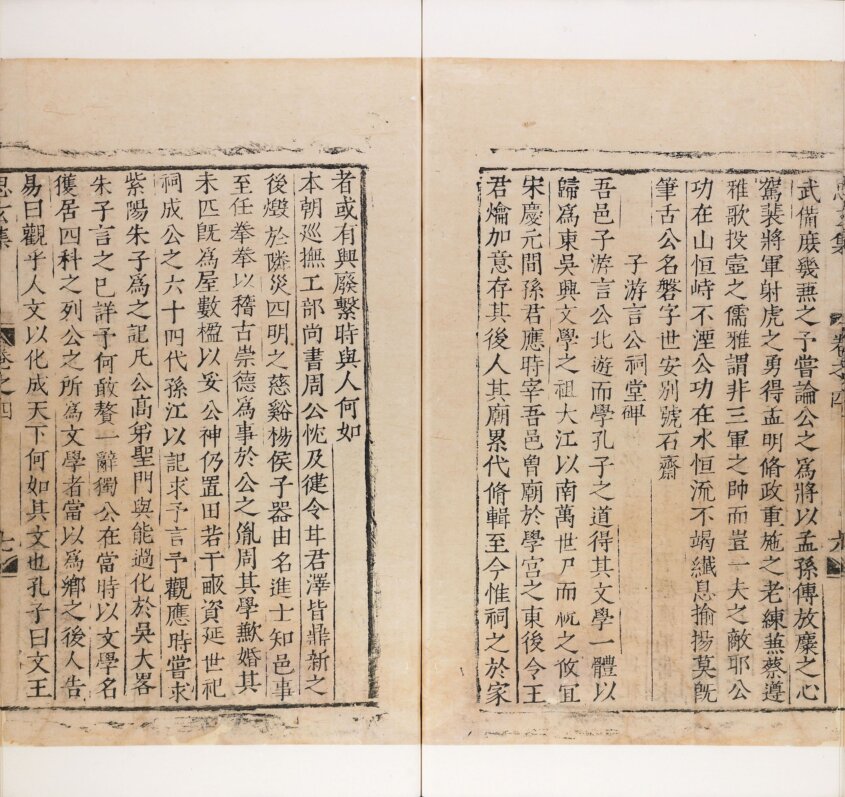 武備庻幾無之予嘗論公之為將以孟孫傳放麑之心
駕裴將軍射虎之勇得孟明脩政重施之老練蕪蔡遵
雅歌投壼之儒雅謂非三軍之帥而豈一夫之敵耶公
功在山恒峙不湮公功在水恒流不竭纎息揄揚莫旣
筆舌公名磐字世安別號石齋
子游言公祠堂碑
吾邑子游言公北遊而學孔子之道得其文學一體以
歸為東吳興文學之祖大江以南萬世尸而祝之攸宜
宋慶元間孫君應時宰吾邑曾廟於學宮之東後令王
君爚加意存其後人其廟累代脩輯至今惟祠之於家
者或有興廢繫時與人何如
本朝廵撫工部尚書周公忱及徤令井君澤皆鼎新之
後燬於隣災四明之慈谿楊侯子器由名進士知邑事
至任拳拳以稽古崇德為事於公之胤周其學歉婚其
未匹旣為屋數楹以妥公神仍置田若干畞資延世祀
祠成公之六十四代孫江以記求予言予觀應時嘗求
紫陽朱子為之記凡公髙第聖門與能過化於吳大畧
朱子言之已詳予何敢贅一辭獨公在當時以文學名
獲居四科之列公之所為文學者當以為鄉之後人告
易曰觀乎人文以化成天下何如其文也孔子曰文王
思玄集
卷之四
七